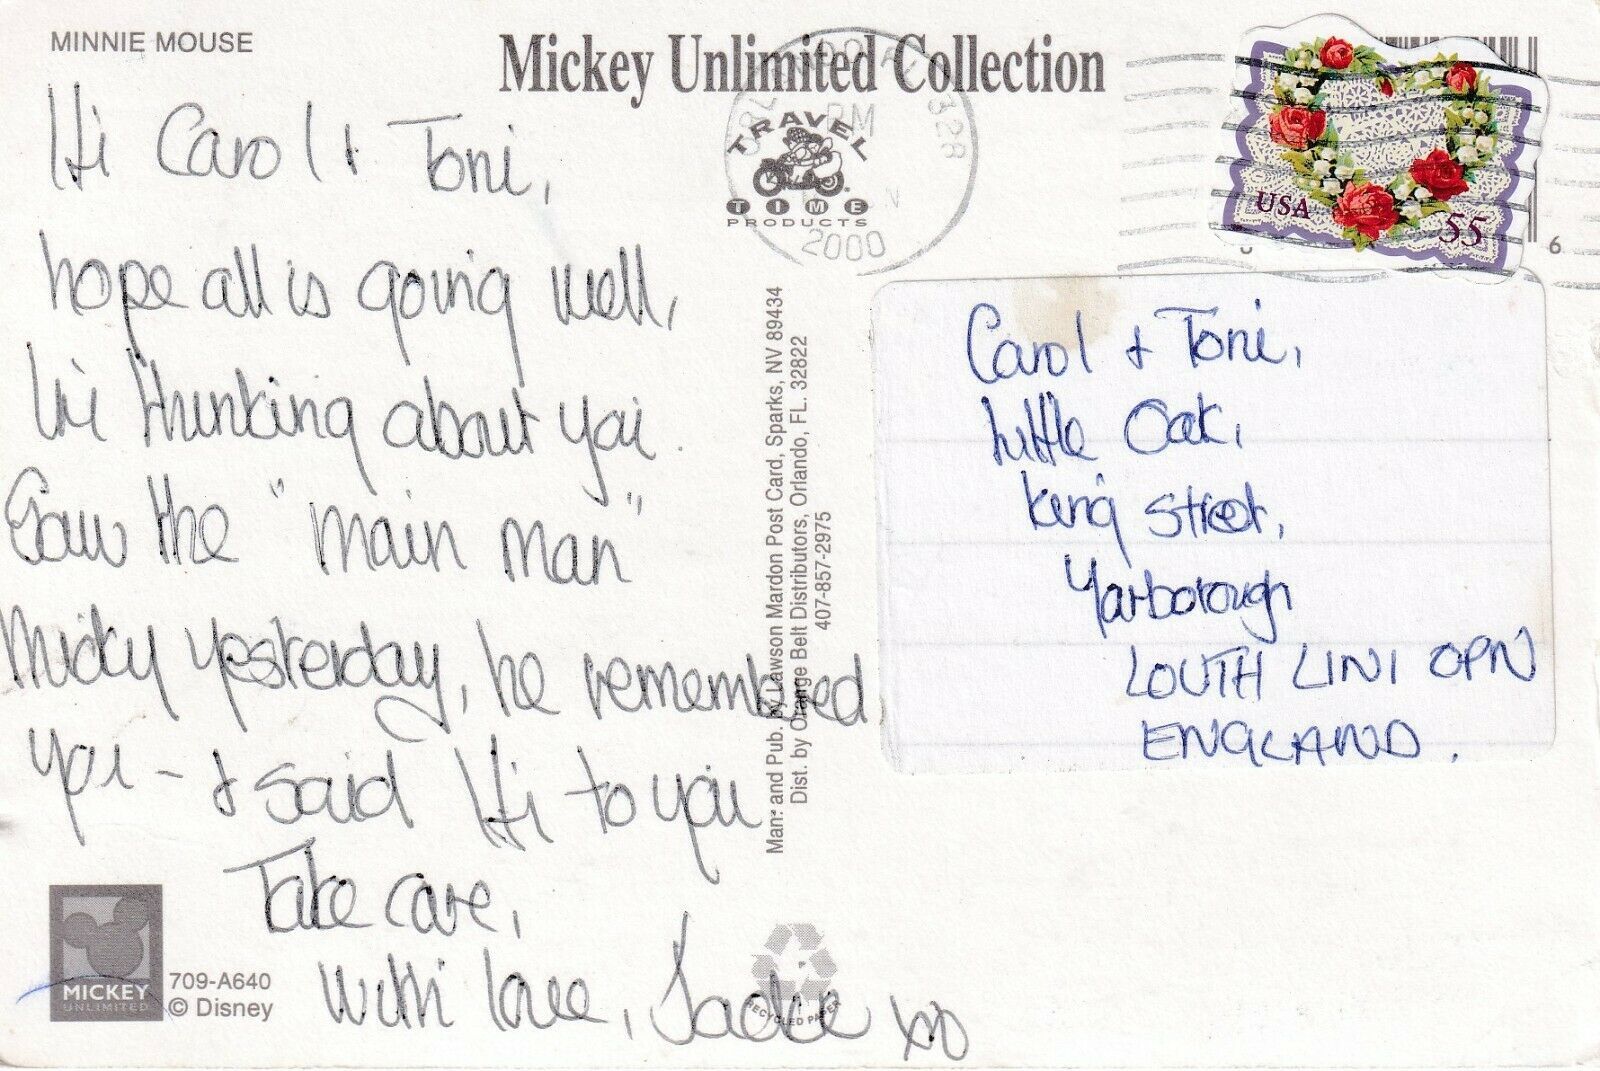 MINNIE MOUSE
Mickey Unlimited Collection
Hi Carol & Toni,
hope all is going well,
I'm thinking about you.
Saw the "main man"
Micky yesterday, he remembered
you - & said Hi to you
Take care,
with love, Jackie xo
TRAVEL
TIME
PRODUCTS
PM
328
2000
USA
55
6
Man. and Pub. by Lawson Mardon Post Card, Sparks, NV 89434
Dist. by Orange Belt Distributors, Orlando, FL. 32822
407-857-2975
Carol & Toni,
Little Oak,
King Street,
Yarborough
LOUTH LINI OPN
ENGLAND.
MICKEY
UNLIMITED
709-A640
© Disney
RECYCLED PAPER